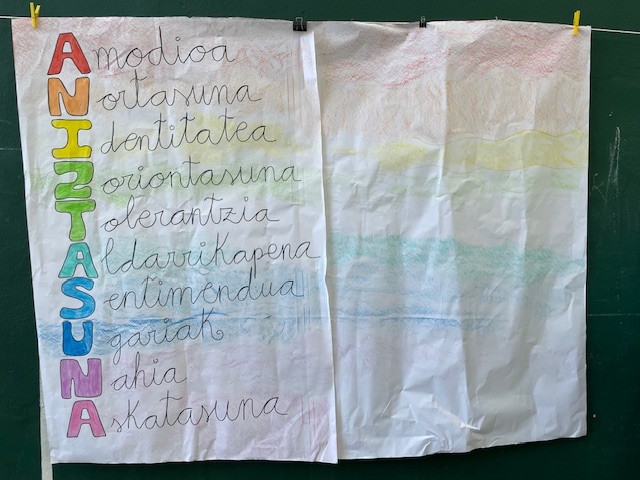 Amodioa
Nortasuna
Identitatea
Zoriontasuna
Tolerantzia
Aldarrikapena
Sentimendua
Ugariak
Nahia
Askatasuna